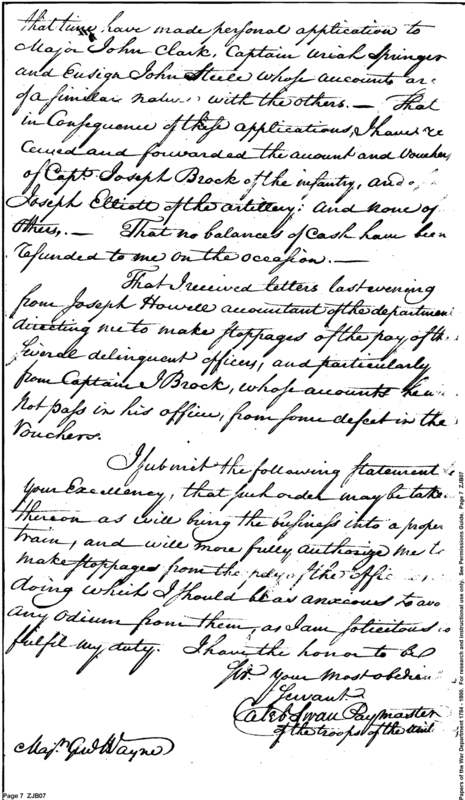 that time have made personal application to
Major John Clark, Captain Uriah Springer
and Ensign John Steele whose accounts are
of a similar nature with the others. — That
in Consequence of these applications, I have re
ceived and forwarded the account and Vouchers
of Capt. Joseph Brock of the infantry, and of
Joseph Elliott of the artillery: and none of
others. — That no balances of Cash have been
refunded to me on the occasion. —
That I received letters last evening
from Joseph Howell accountant of the department
directing me to make stoppages of the pay of the
several delinquent officers, and particularly
from Captain J Brock, whose accounts
Not pass in his office, from some defect in the
Vouchers.
I submit the following statement
your Excellency, that such order may be take
thereon as will bring the business into a proper
train, and will more fully authorize me to
make stoppages from the of the
doing which I should be as anxious to avo
any odium from them, as I am solicitous
fulfil my duty. I have the honor to be
Sir your most obedien
Servant
Caleb Swan Paymaster
of the troops of the
Majr. Genl Wayne
Page 7 ZJB07
Papers of the War Department 1784 - 1800. For research and instructional use only. See Permissions Guide. Page 7 ZJB07